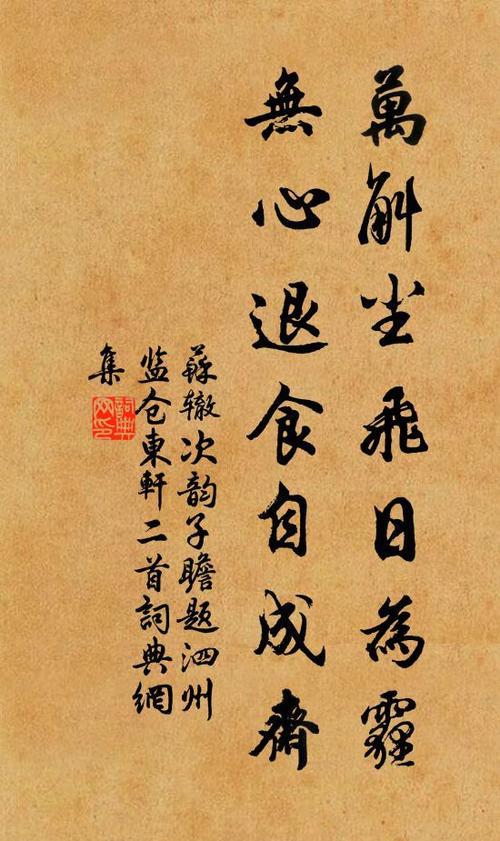 萬斛尘飛日為霾
無心退食自成齋
蘇辙次韵子瞻题泗州
监仓東軒二首詞典網
集